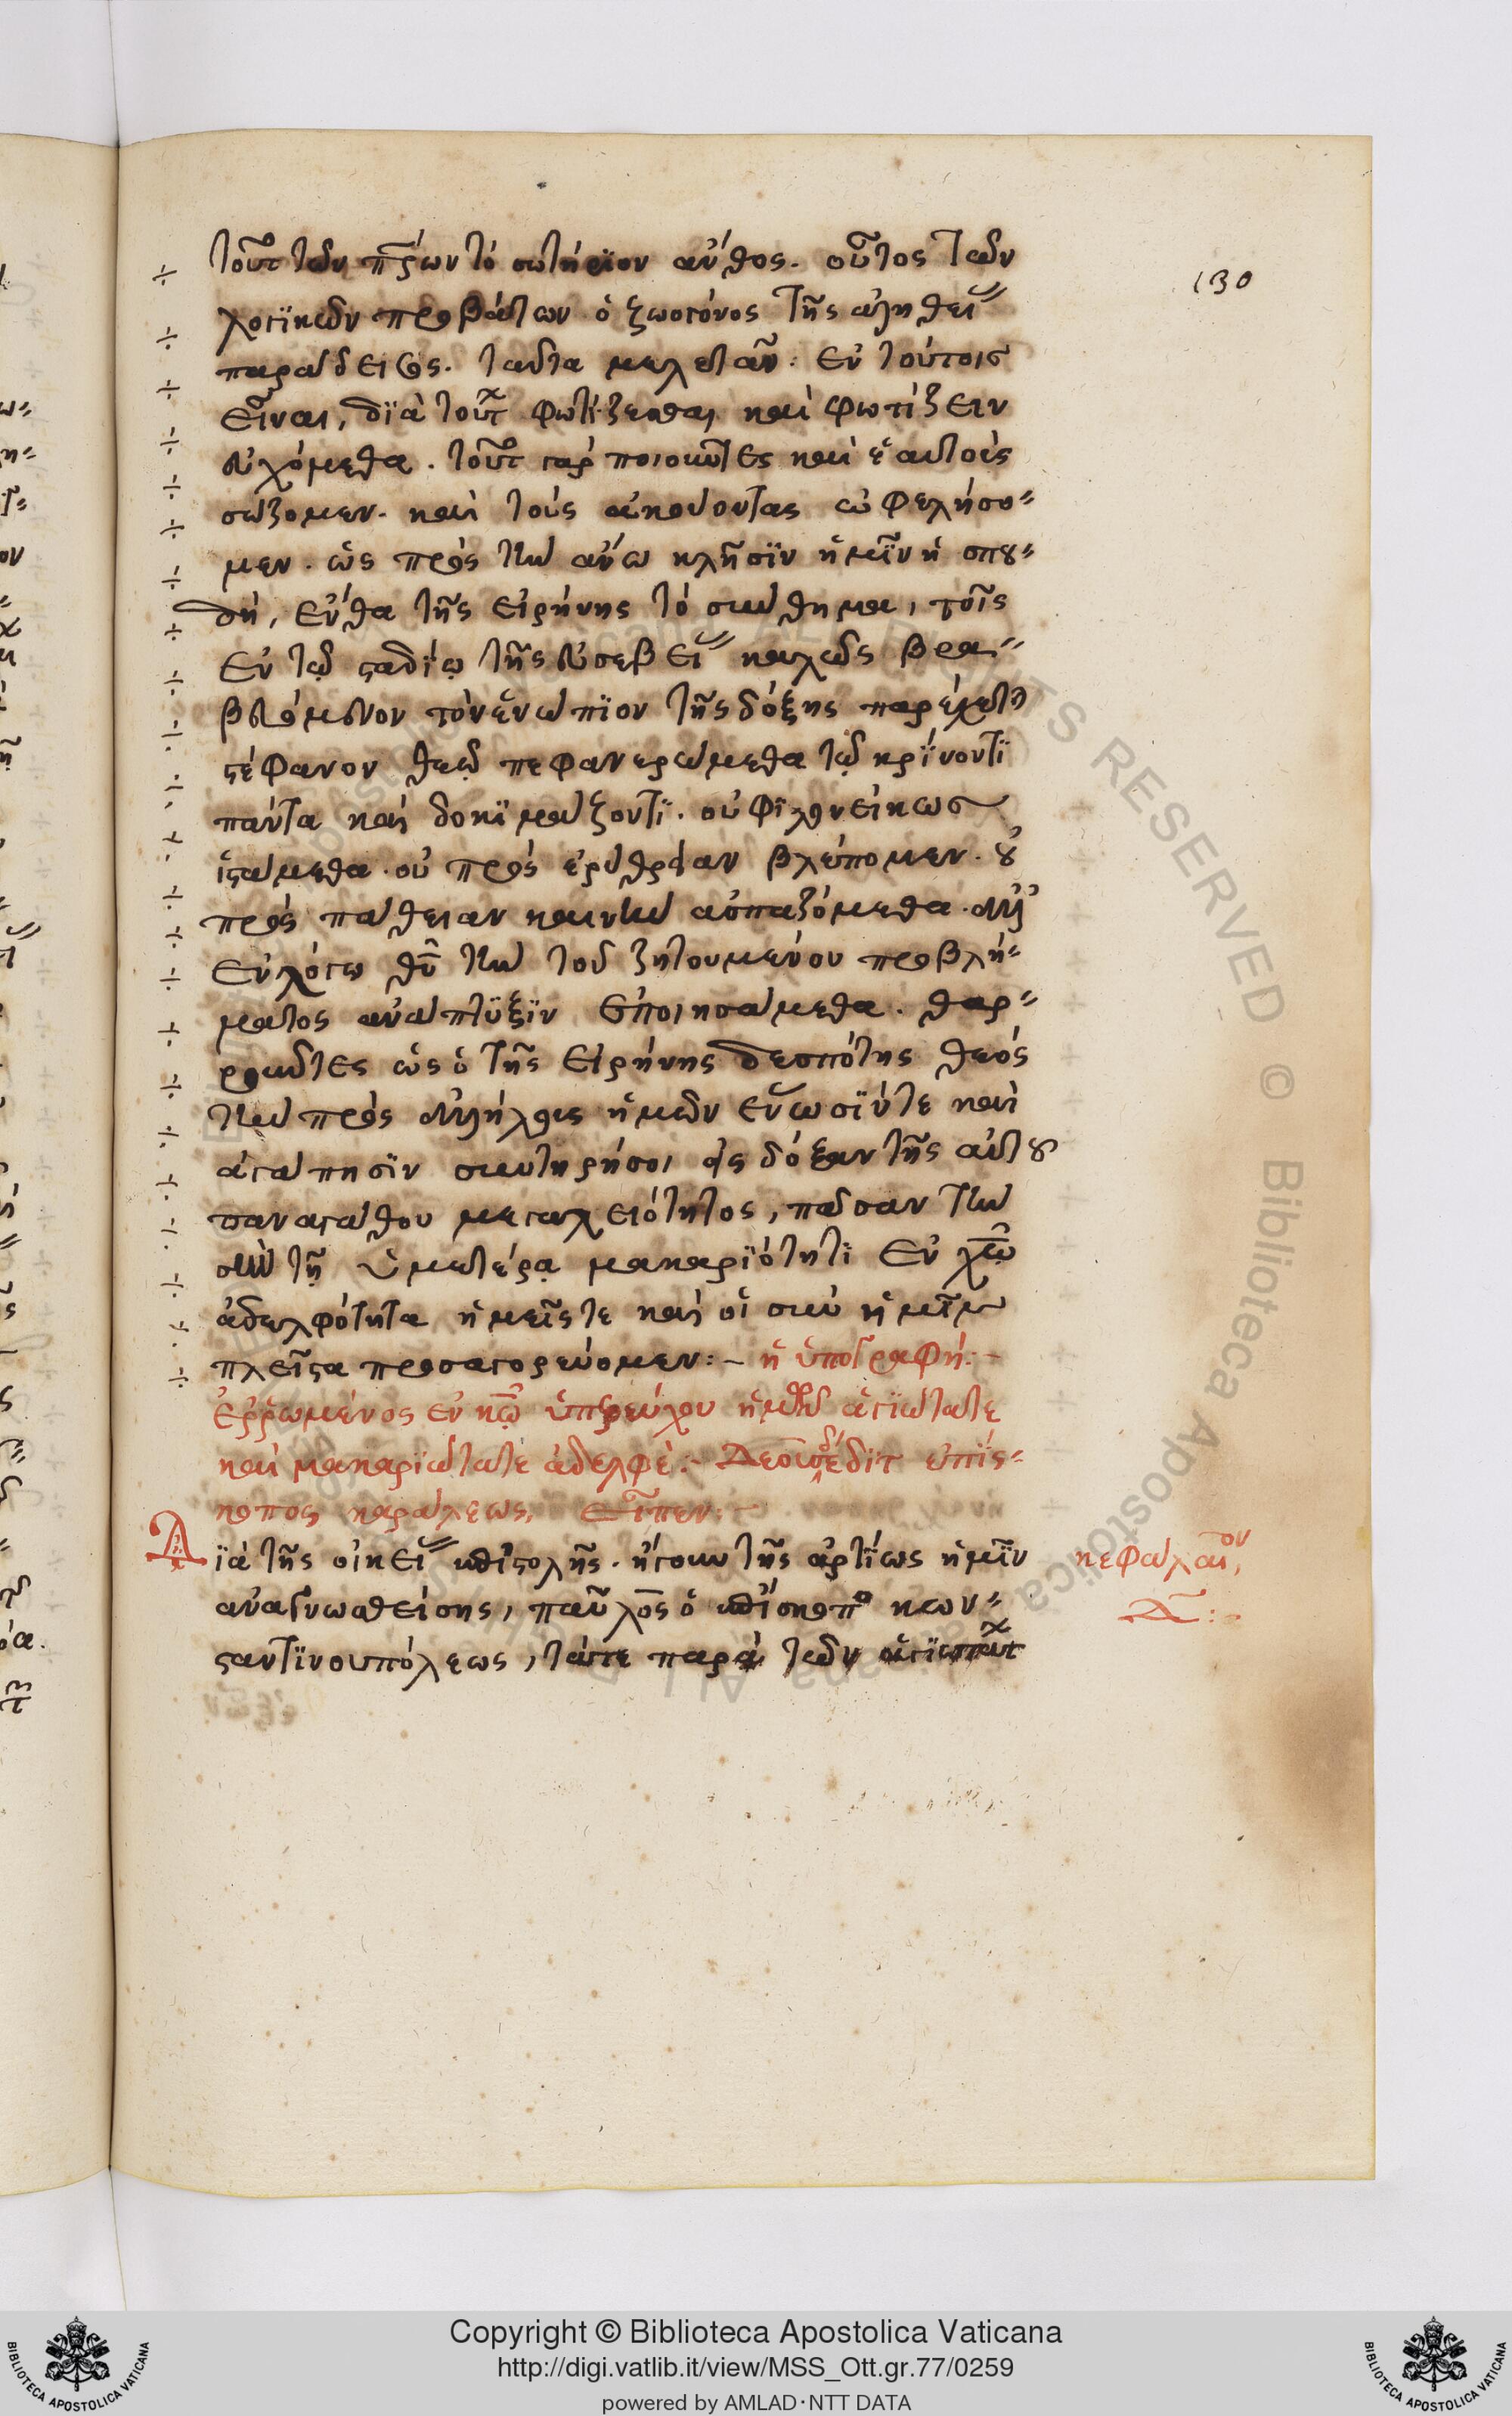 130
τοῦτο τῶν πρ̅ων τὸ σωτήριον ἄνθος. οὗτος τῶν
λογϊκῶν προβάτων ὁ ζωογόνος τῆς ἀληθεί
παράδεισος. ταῦτα μελετᾶν. ἐν τούτοις
εἶναι, δϊὰ τοῦτο φωτίζεσθαι καὶ φωτίζειν
εὐχόμεθα. τοῦτο γὰρ ποιοῦντες καὶ ἑαυτοὺς
σώζομεν. καὶ τοὺς ἀκούοντας ὠφελήσο-
μεν. ὡς πρὸς τὴν ἄνω κλῆσϊν ἡμῖν ἡ σπου-
δή, ἔνθα τῆς εἰρήνης τὸ σύνθημα, τοῖς
ἐν τῷ σταδίῳ τῆς εὐσεβεί καλῶς βρα-
βευόμενον τὸν ἐνώπϊον τῆς δόξης παρέχεται
στέφανον θεῷ πεφανερώμεθα τῷ κρίνοντϊ
πάντα καὶ δοκϊμάζοντϊ. οὐ φϊλονείκως
ἱστάμεθα. οὐ πρὸς ἐρυθρίαν βλέπομεν. οὐ
πρὸς πάθειαν καινὴν ἀσπαζόμεθα. ἀλλ'
ἐν λόγω θυ̅ τὴν τοῦ ζητουμένου προβλή-
ματος ἀνάπτϋξϊν ἐποιησάμεθα. θαρ-
ροῦντες ὡς ὁ τῆς εἰρήνης δεσπότης θεὸς
τὴν πρὸς ἀλλήλους ἡμῶν ἕνωσϊν τε καὶ
ἀγάπησϊν συντηρήσοι εἰς δόξαν τῆς αὐτοῦ
παναγάθου μεγαλειότητος, πᾶσαν τὴν
σὺν τῇ ὑμετέρᾳ μακαρϊότητϊ ἐν χω̅
ἀδελφότητα ἡμεῖς τε καὶ οἱ σὺν ἡμῖν
πλεῖστα προσαγορεύομεν:- ἡ ὑπογραφή:-
ἐρρωμένος ἐν κω̅ ὑπερεύχου ἡμῶν ἁγϊώτατε
καὶ μακαρϊώτατε ἀδελφὲ:- Δεουσδεδϊτ ἐπίσ-
κοπος καράλεως, εἶπεν:-
Δϊὰ τῆς οἰκεί ἐπϊστολῆς. ἤγουν τῆς ἀρτίως ἡμῖν
ἀναγνωσθείσης, παῦλος ὁ ἐπίσκοπος κων-
σταντϊνουπόλεως, τάτε παρὰ τῶν ἁγϊωτάτ
κεφάλαιον,
Δ̅:
Copyright © Biblioteca Apostolica Vaticana
http://digi.vatlib.it/view/MSS_Ott.gr.77/0259
powered by AMLAD·NTT DATA